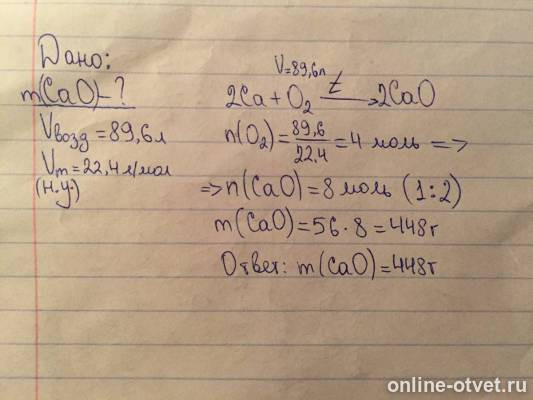 Дано:
m(CaO)-?
Vвозд = 89,6 л
Vm = 22,4 л/мол
(н.у.)
V=89,6л
t
2Ca + O₂ → 2CaO
n(O₂) = 89,6/22,4 = 4 моль =>
=> n(CaO) = 8 моль (1:2)
m(CaO) = 56 · 8 = 448г
Ответ: m(CaO) = 448г
online-otvet.ru